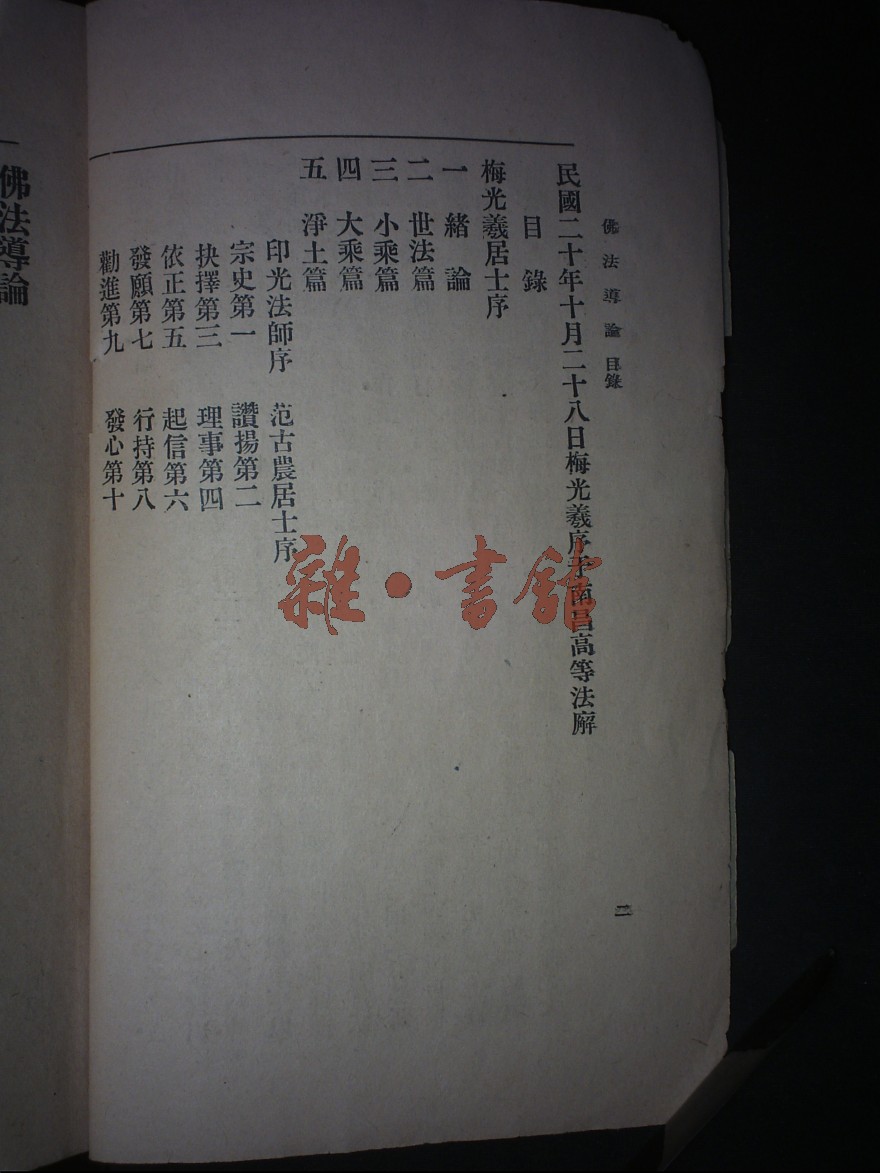 佛法導論 目錄
二
民國二十年十月二十八日梅光羲序于南昌高等法廨
目錄
梅光羲居士序
一 緒論
二 世法篇
三 小乘篇
四 大乘篇
五 淨土篇
印光法師序 范古農居士序
宗史第一 讚揚第二
抉擇第三 理事第四
依正第五 起信第六
發願第七 行持第八
勸進第九 發心第十
佛法導論
雜·書館